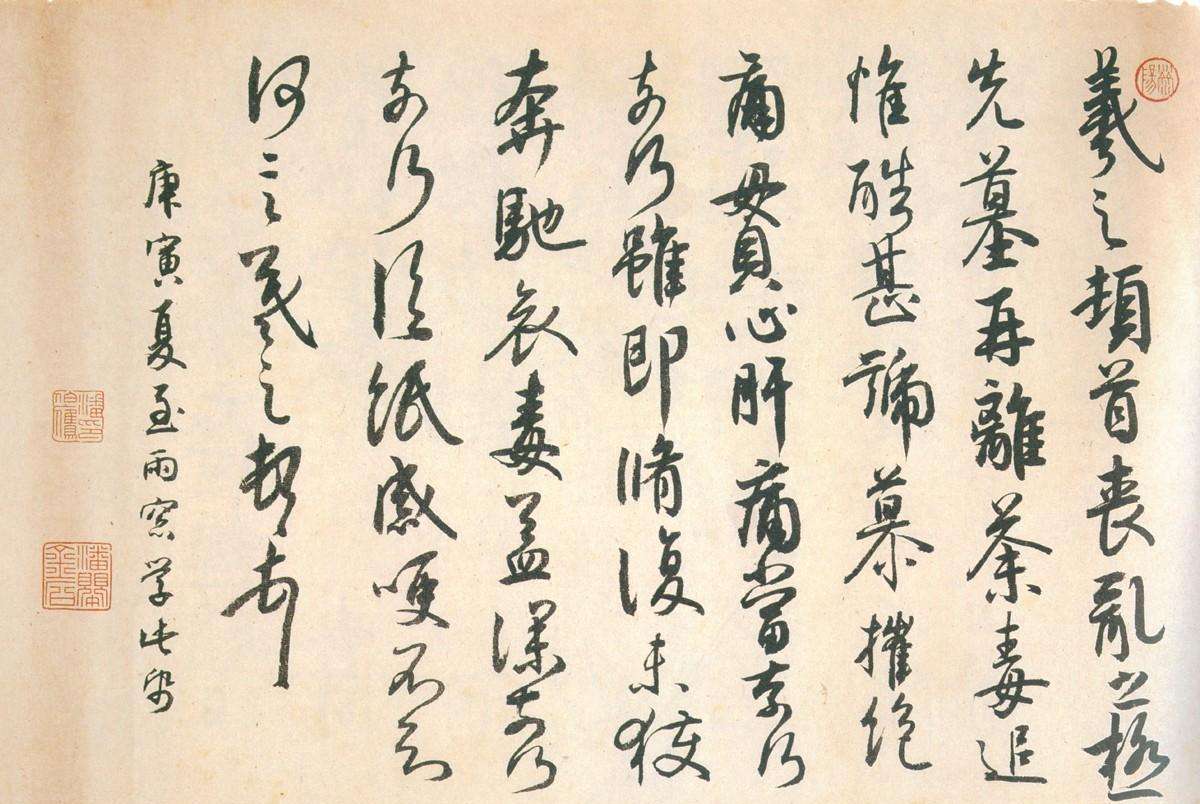 羲之頓首喪亂之極
先墓再離荼毒追
惟酷甚號慕摧絕
痛貫心肝痛當奈何
奈何雖即脩復未獲
奔馳哀毒益深奈何
奈何臨紙感哽不知
何言羲之頓首
庚寅夏至雨窗學此
潘印伯鷹